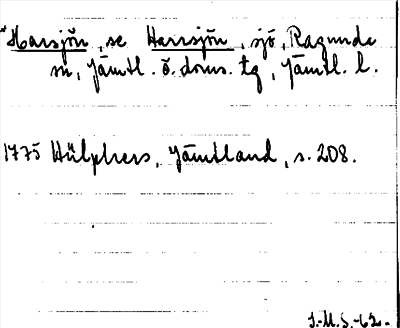 "Harsjön, se Harrsjön, sjö, Ragunda
sn, Jämtl. ö. doms. tg, Jämtl. l.
1775 Hülphers, Jämtland, s. 208.
J.-M. S.-62.